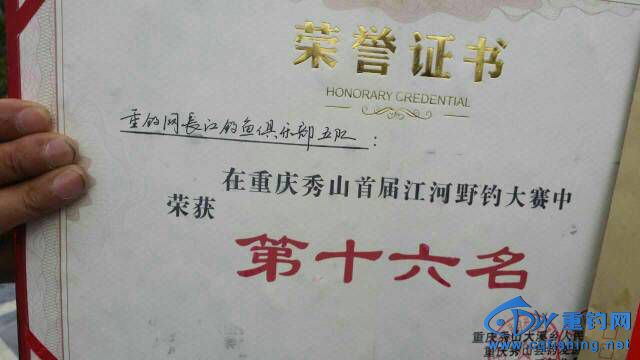 荣誉证书
HONORARY CREDENTIAL
重钓网長江钓鱼俱乐部五队：
在重庆秀山首届江河野钓大赛中
荣获
第十六名
重庆秀山大溪乡人民
重庆秀山
重钓网
www.cqfishing.net